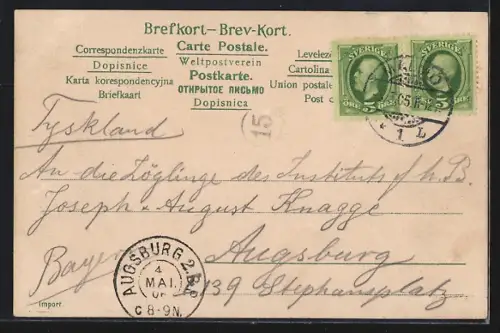 Brefkort-Brev-Kort.
Correspondenzkarte Carte Postale.
Dopisnice Weltpostverein Levelező
Karta korespondencyjna Postkarte. Cartolina
Briefkaart ОТКРЫТОЕ ПИСЬМО Union postale
Dopisnica Post
SVERIGE SVERIGE
5 ÖRE 5
1 L
15
Tyskland
An die Zöglinge des Instituts f. h. B.
Joseph August Knagge
Bayern Augsburg
139 Stephansplatz
AUGSBURG 2.
4
MAI.
C 8-9 N.
Import.